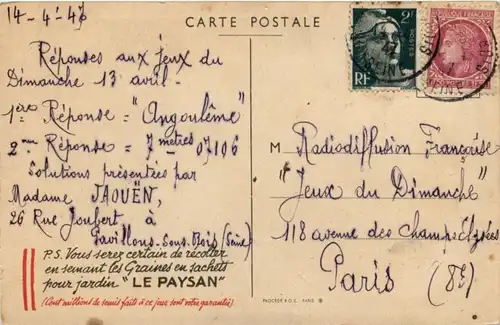 14-4-47
CARTE POSTALE
Réponses aux jeux du
Dimanche 13 avril.
1ère Réponse = "Angoulême"
2me Réponse = 7 mètres 07106
Solutions présentées par
Madame JAOUËN,
26 Rue Joubert à
Pavillons-Sous-Bois (Seine)
P.S. Vous serez certain de récolter
en semant les Graines en sachets
pour jardin "LE PAYSAN"
(Cent millions de semis faits à ce jour sont votre garantie)
2F
POSTES
RF
M Radiodiffusion Française
"Jeux du Dimanche"
118 avenue des Champs Elysées
Paris (8e)